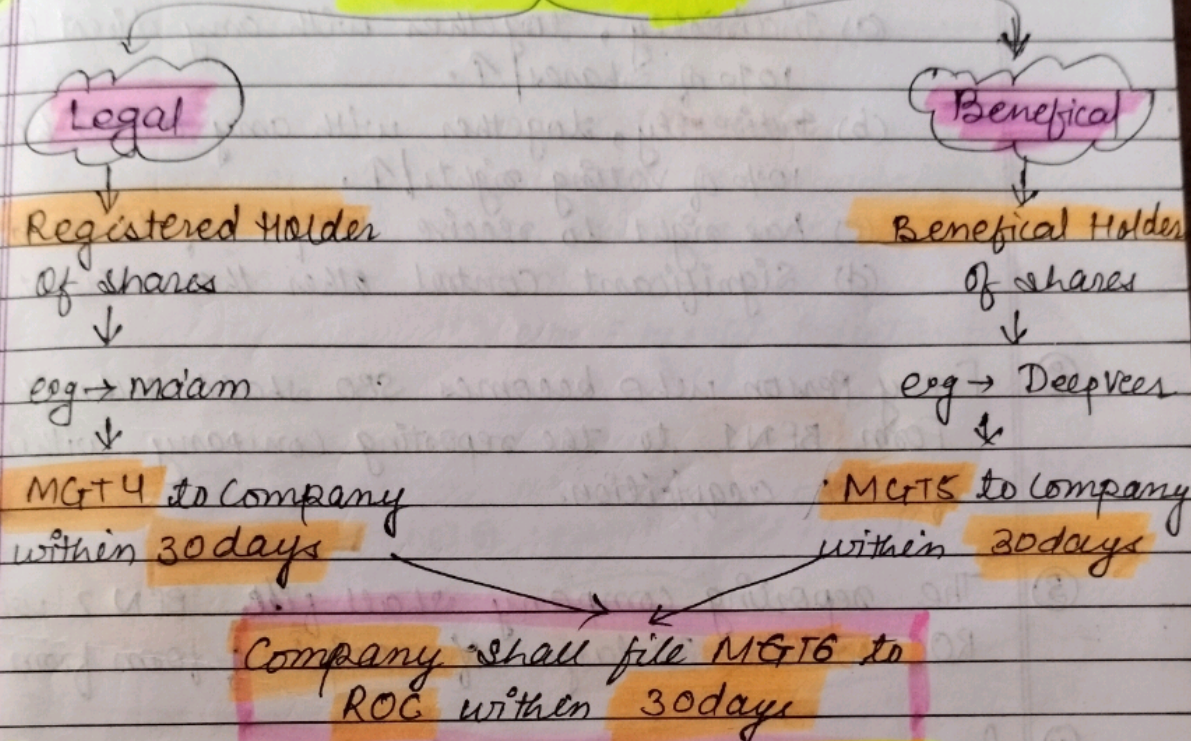 Legal
Benefical
Registered Holder
of shares
↓
eg → ma'am
↓
MGT4 to Company
within 30 days
Benefical Holder
of shares
↓
eg → Deepveer
↓
MGT5 to Company
within 30 days
Company shall file MGT6 to
ROC within 30 days